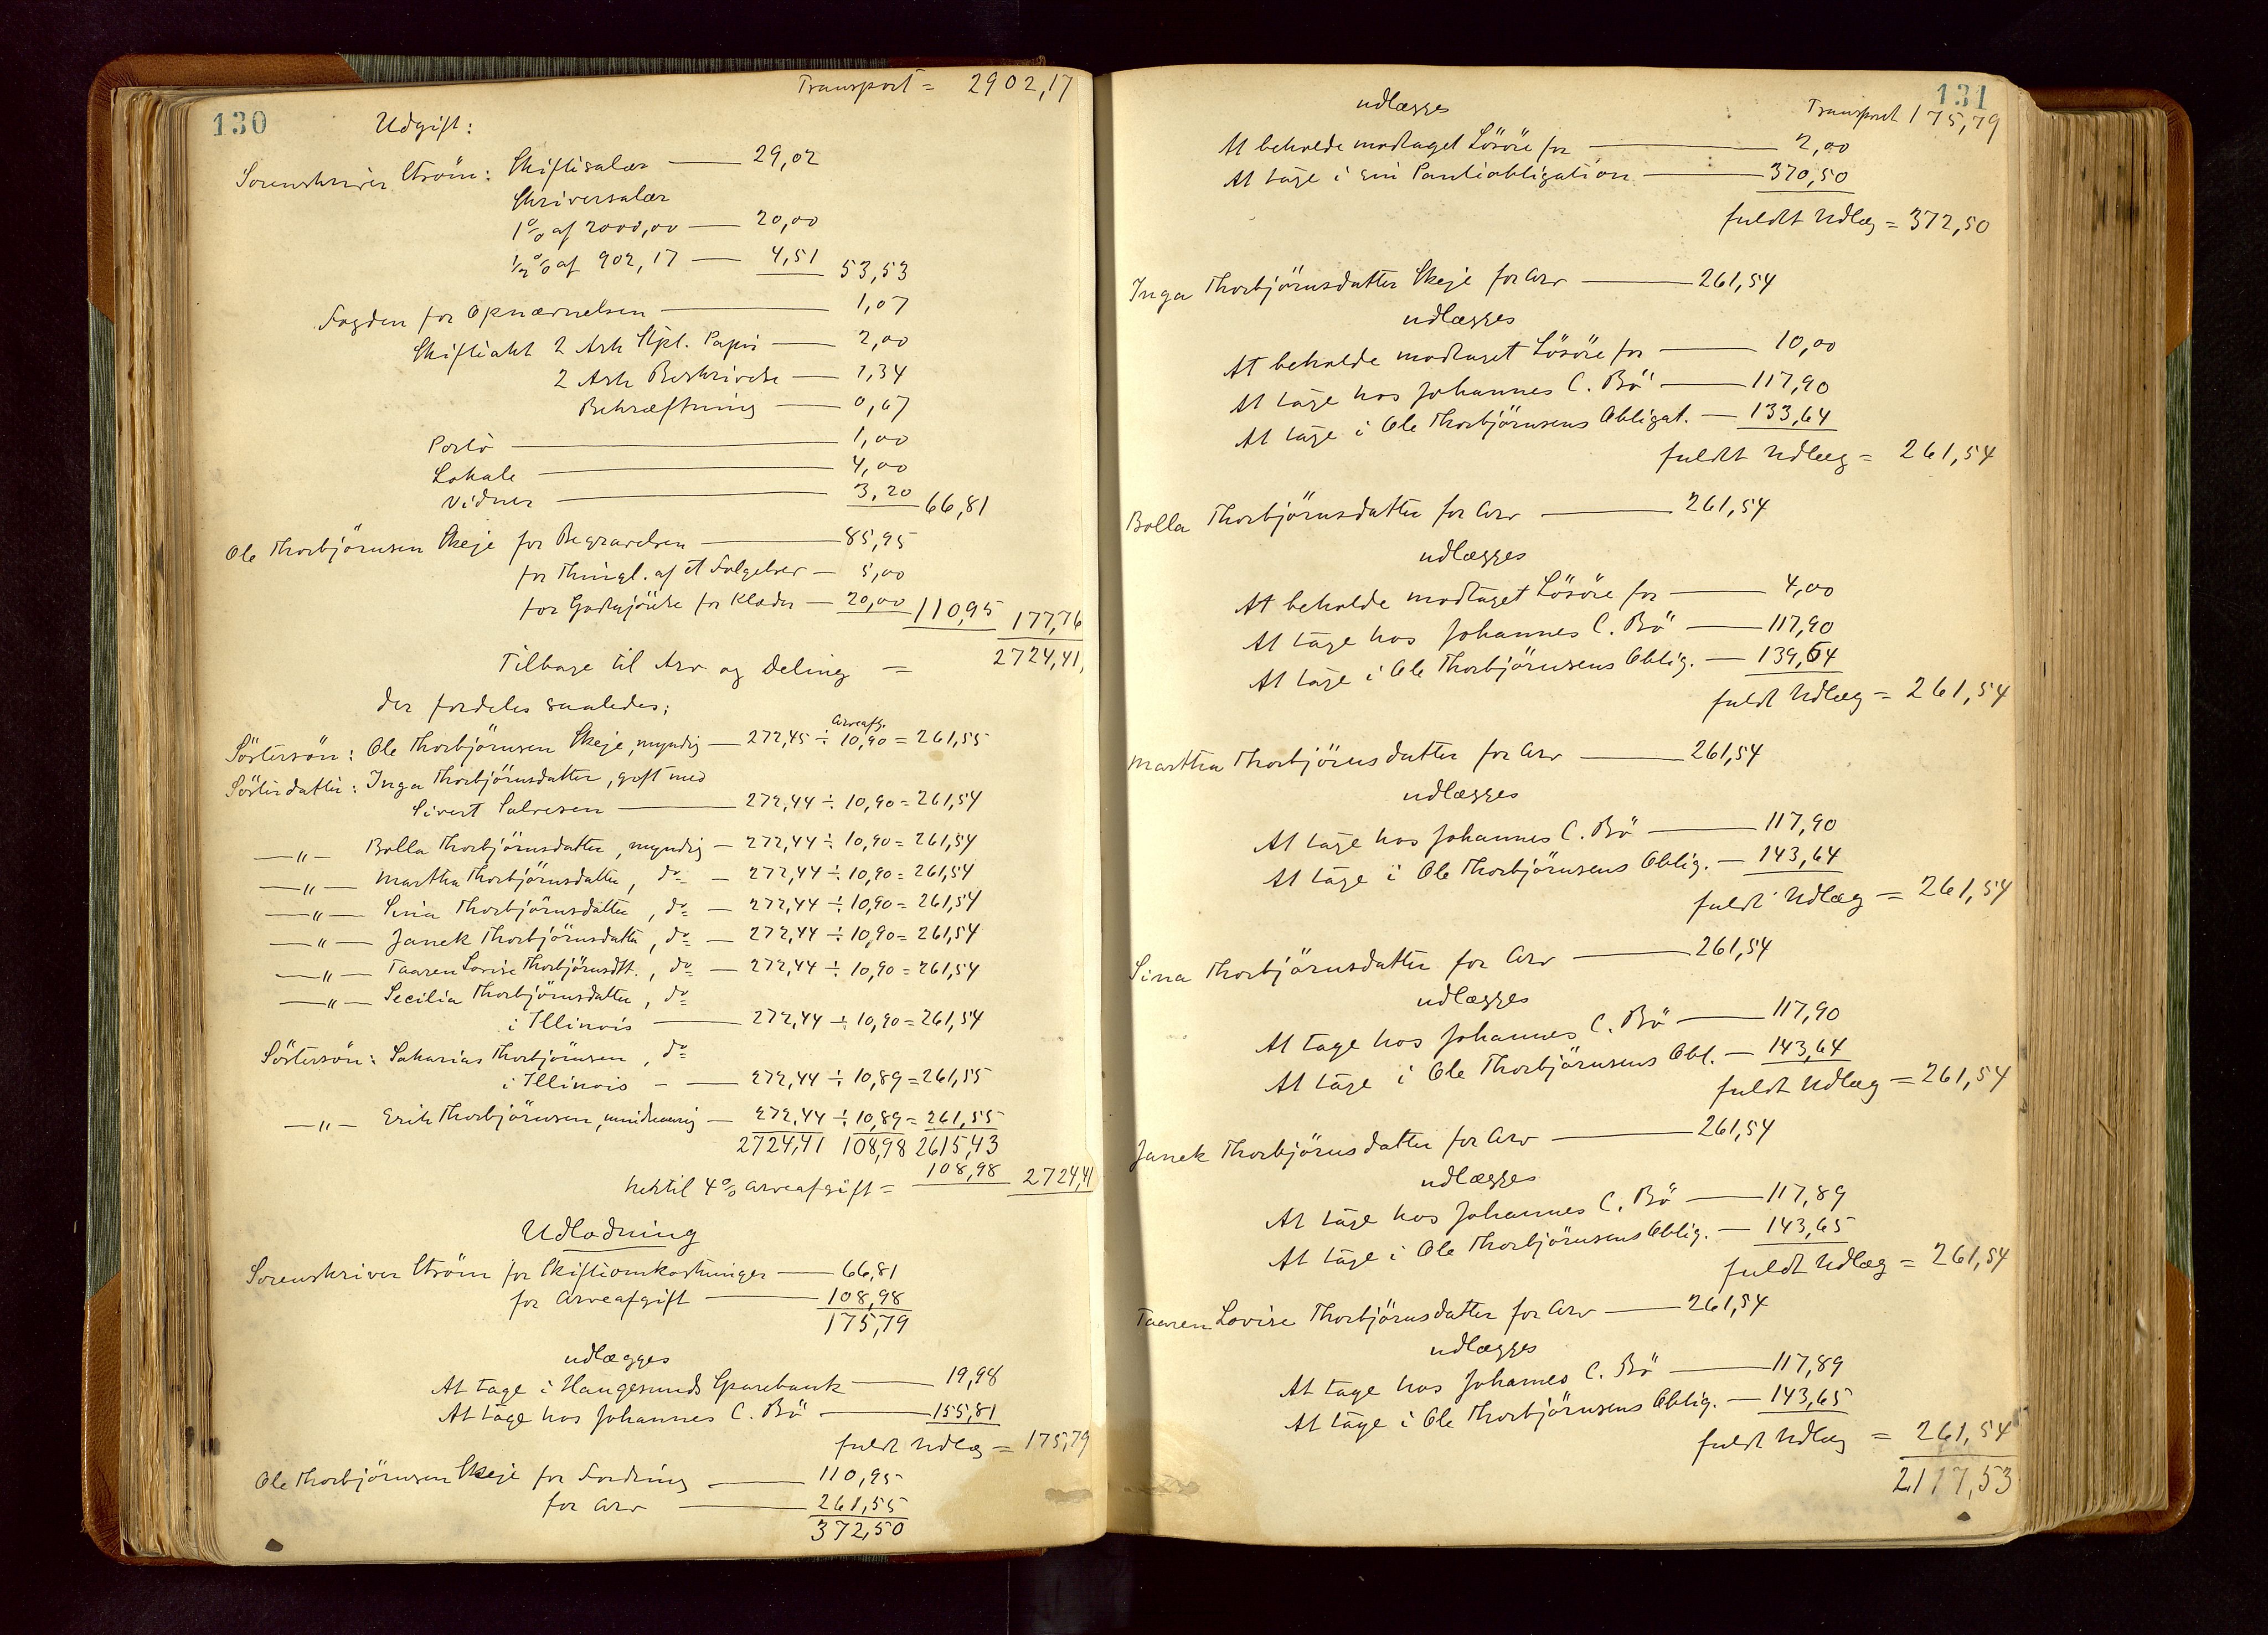 130
Transport = 2902,17
Udgift:
Sorenskriver Ström: Skiftesalær — 29,02
Skriversalær
1% af 2000,00 — 20,00
1/2% af 902,17 — 4,51 53,53
Fogden for Opnævnelsen — 1,07
Skifteakt 2 Ark Stpl. Papir — 2,00
2 Ark Beskrivelse — 1,34
Bekræftning — 0,67
Porto — 1,00
Lokale — 4,00
Vidner — 3,20 66,81
Ole Thorbjörnsen Skeje for Begravelsen — 85,95
for Thingl. af et Folgebrev — 5,00
for Godtgjörelse for Klæder — 20,00 110,95 177,76
Tilbage til Arv og Deling = 2724,41
der fordeles saaledes;
Arveafg.
Söstersön: Ole Thorbjörnsen Skeje, myndig — 272,45 ÷ 10,90 = 261,55
Sösterdatter: Inga Thorbjörnsdatter, gift med
Sivert Salvesen — 272,44 ÷ 10,90 = 261,54
—"— Bolla Thorbjörnsdatter, myndig — 272,44 ÷ 10,90 = 261,54
—"— Martha Thorbjörnsdatter, do — 272,44 ÷ 10,90 = 261,54
—"— Sina Thorbjörnsdatter, do — 272,44 ÷ 10,90 = 261,54
—"— Janek Thorbjörnsdatter, do — 272,44 ÷ 10,90 = 261,54
—"— Taaren Lovise Thorbjörnsdtt., do — 272,44 ÷ 10,90 = 261,54
—"— Secilia Thorbjörnsdatter, do
i Illinois — 272,44 ÷ 10,90 = 261,54
Söstersön: Sakarias Thorbjörnsen, do
i Illinois — 272,44 ÷ 10,89 = 261,55
—"— Erik Thorbjörnsen, mindreaarig — 272,44 ÷ 10,89 = 261,55
2724,41 108,98 2615,43
hertil 4% Arveafgift = 108,98 2724,41
Udlodning
Sorenskriver Ström for Skifteomkostninger — 66,81
for Arveafgift — 108,98
175,79
udlægges
At tage i Haugesunds Sparebank — 19,98
At tage hos Johannes C. Bö — 155,81
fuldt Udlæg = 175,79
Ole Thorbjörnsen Skeje for Fordring — 110,95
for Arv — 261,55
372,50
131
Transport 175,79
udlægges
At beholde modtaget Lösöre for — 2,00
At tage i sin Panteobligation — 370,50
fuldt Udlæg = 372,50
Inga Thorbjörnsdatter Skeje for Arv — 261,54
udlægges
At beholde modtaget Lösöre for — 10,00
At tage hos Johannes C. Bö — 117,90
At tage i Ole Thorbjörnsens Obligat. — 133,64
fuldt Udlæg = 261,54
Bolla Thorbjörnsdatter for Arv — 261,54
udlægges
At beholde modtaget Lösöre for — 4,00
At tage hos Johannes C. Bö — 117,90
At tage i Ole Thorbjörnsens Oblig. — 139,64
fuldt Udlæg = 261,54
Martha Thorbjörnsdatter for Arv — 261,54
udlægges
At tage hos Johannes C. Bö — 117,90
At tage i Ole Thorbjörnsens Oblig. — 143,64
fuldt Udlæg = 261,54
Sina Thorbjörnsdatter for Arv — 261,54
udlægges
At tage hos Johannes C. Bö — 117,90
At tage i Ole Thorbjörnsens Obl. — 143,64
fuldt Udlæg = 261,54
Janek Thorbjörnsdatter for Arv — 261,54
udlægges
At tage hos Johannes C. Bö — 117,89
At tage i Ole Thorbjörnsens Oblig. — 143,65
fuldt Udlæg = 261,54
Taaren Lovise Thorbjörnsdatter for Arv — 261,54
udlægges
At tage hos Johannes C. Bö — 117,89
At tage i Ole Thorbjörnsens Oblig. — 143,65
fuldt Udlæg = 261,54
2117,53